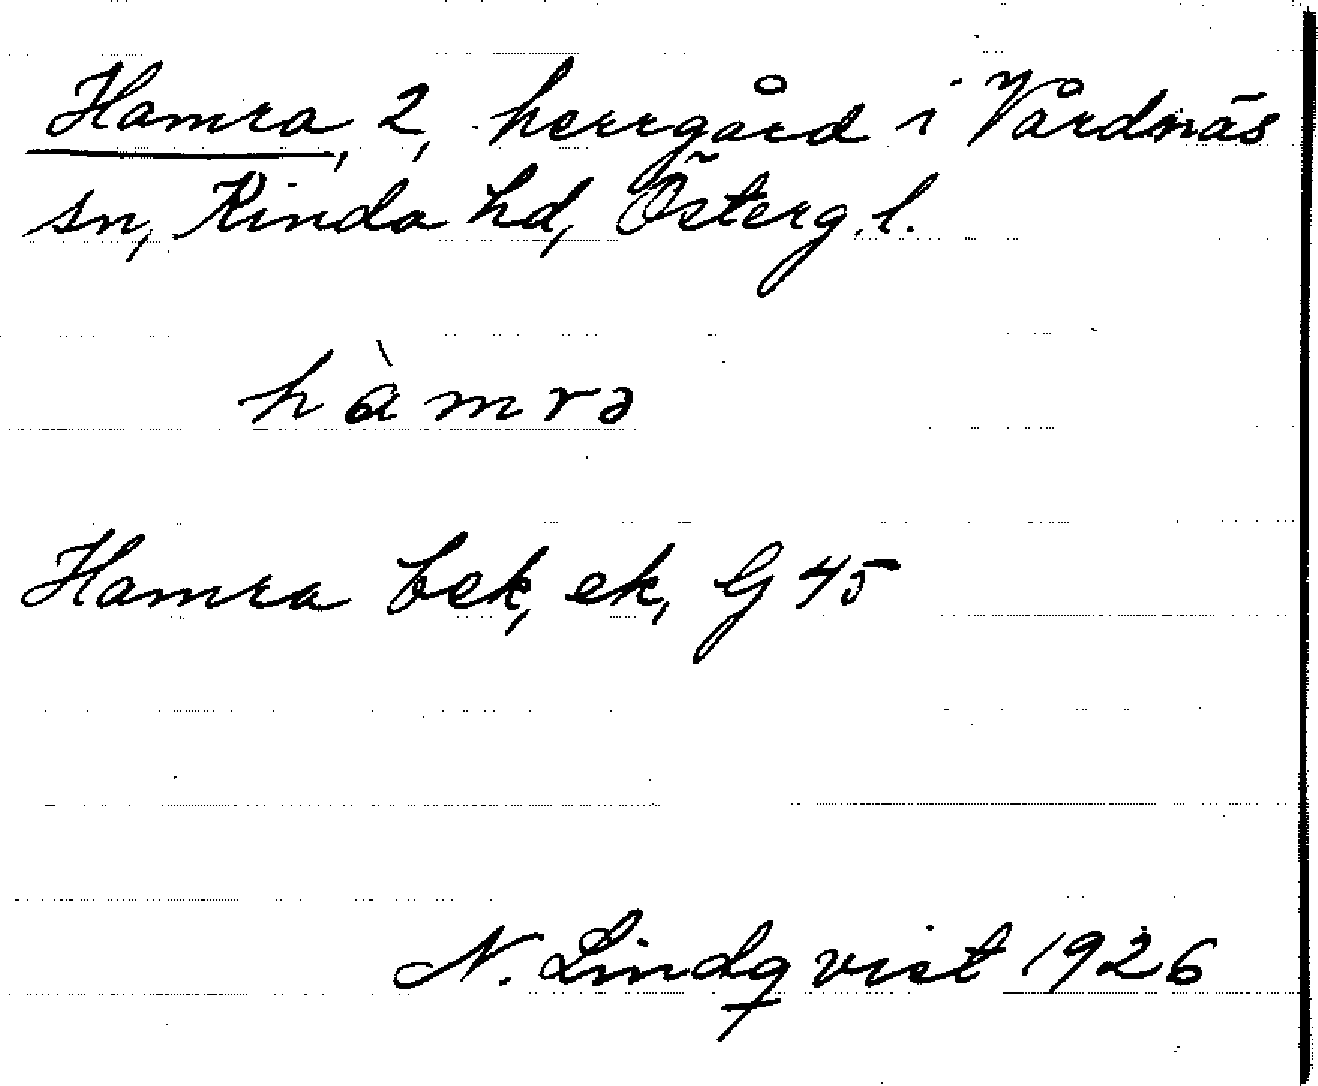 Hamra, 2, herrgård i Vårdnäs
sn, Kinda hd, Österg. l.
hàmrə
Hamra bek, ek, G 45
N. Lindqvist 1926